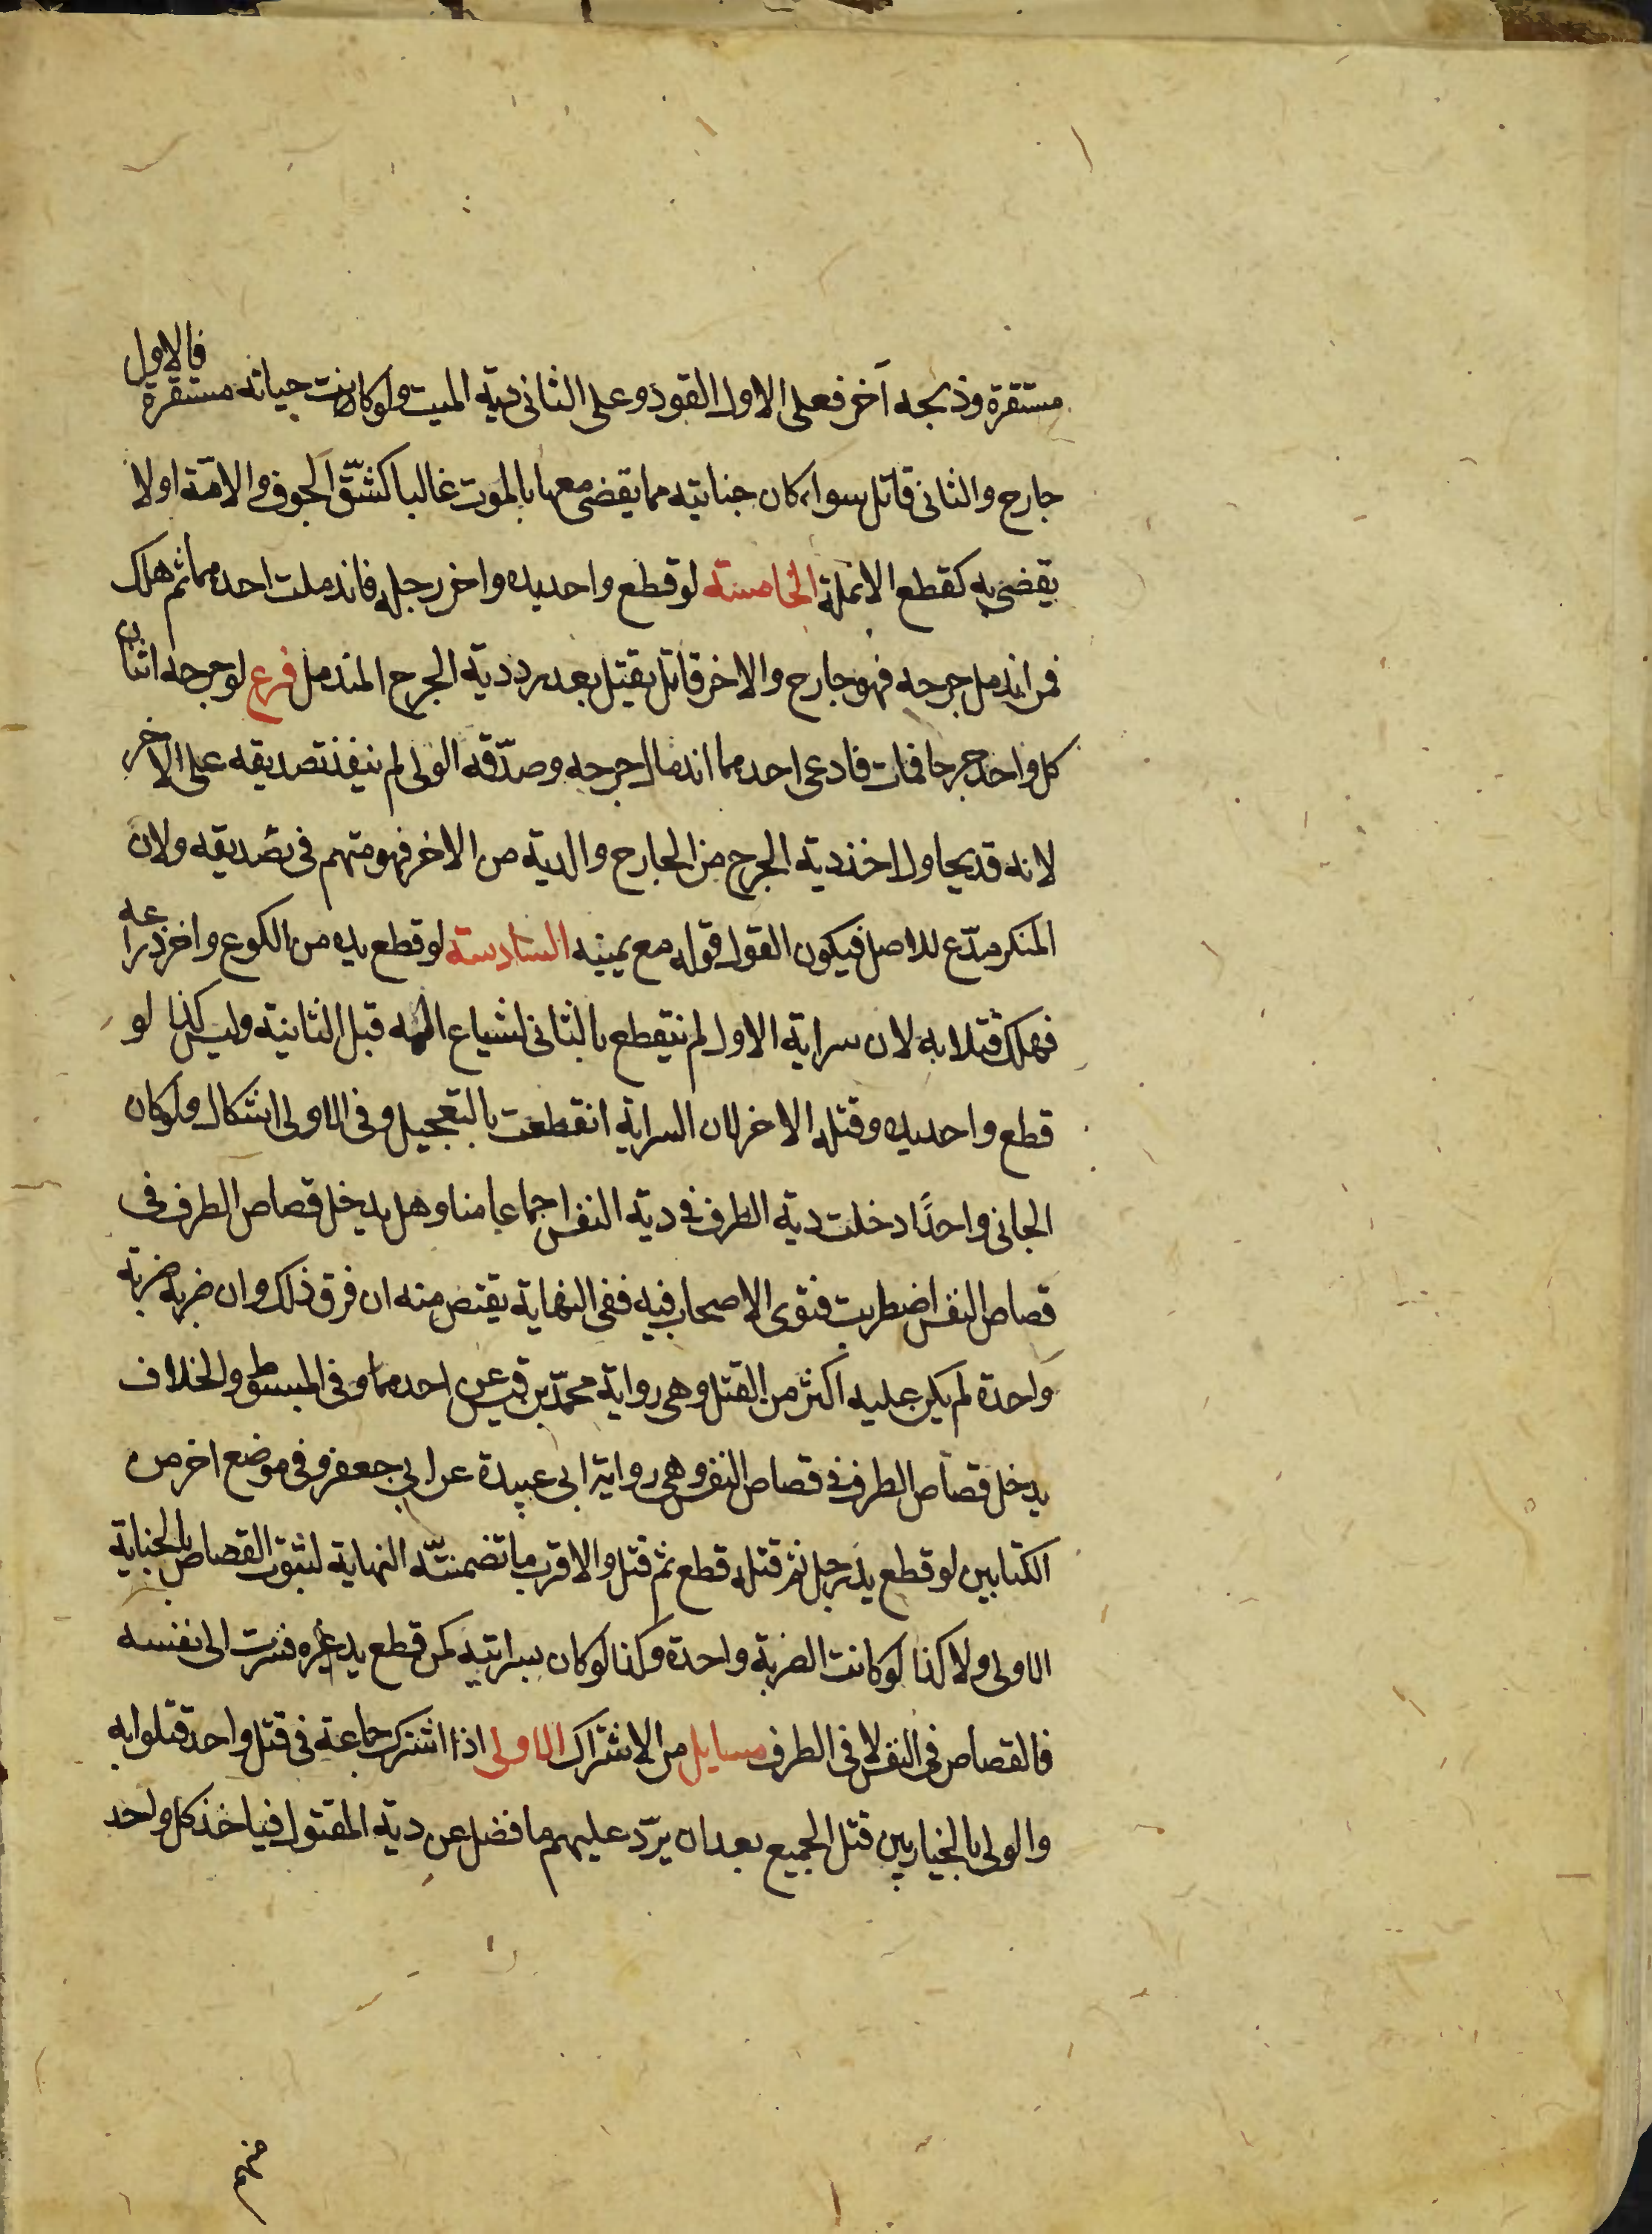 مستقرة وذبحه آخر فعلى الاول القود وعلى الثانى دية الميت ولو كانت حياته مستقرة فالاول
جارح والثانى قاتل سواء كان جنايته مما يقضى معها بالموت غالبا كشقّ الجوف والامّة اولا
يقضى به كقطع الانملة الخامسة لو قطع واحد يده واخر رجله فاندملت احدهما ثم هلك
فمن اندمل جرحه فهو جارح والاخر قاتل يقتل بعد رد دية الجرح المندمل فرع لو جرحه اثنان
كل واحد جرحا فمات فادعى احدهما اندمال جرحه وصدّقه الولى لم ينفذ تصديقه على الاخر
لانه قد يحاول اخذ دية الجرح من الجارح والدية من الاخر فهو متهم فى تصديقه ولان
المنكر مدّع للاصل فيكون القول قوله مع يمينه السادسة لو قطع يده من الكوع واخر ذراعه
فهلك قتلا به لان سراية الاول لم ينقطع بالثانى لشياع المه قبل الثانية وليس كذا لو
قطع واحد يده وقتله الاخر لان السراية انقطعت بالتعجيل وفى الاولى اشكال ولو كان
الجانى واحدًا دخلت دية الطرف فى دية النفس اجماعا منا وهل يدخل قصاص الطرف فى
قصاص النفس اضطربت فتوى الاصحاب فيه ففى النهاية يقتص منه ان فرق ذلك وان ضربه ضربة
واحدة لم يكن عليه اكثر من القتل وهى رواية محمّد بن قيس عن احدهما وفى المبسوط والخلاف
يدخل قصاص الطرف فى قصاص النفس وهى رواية ابى عبيدة عن ابى جعفر وفى موضع اخر من
الكتابين لو قطع يد رجل ثم قتله قطع ثم قتل والاقرب ما تضمنتّه النهاية لثبوت القصاص بالجناية
الاولى ولا كذا لو كانت الضربة واحدة وكذا لو كان بسرايته كمن قطع يد غيره فسرت الى نفسه
فالقصاص فى النفس لا فى الطرف مسايل من الاشتراك الاولى اذا اشترك جماعة فى قتل واحد قتلوا به
والولى بالخيار بين قتل الجميع بعد ان يردّ عليهم ما فضل عن دية المقتول فياخذ كل واحد
منهم